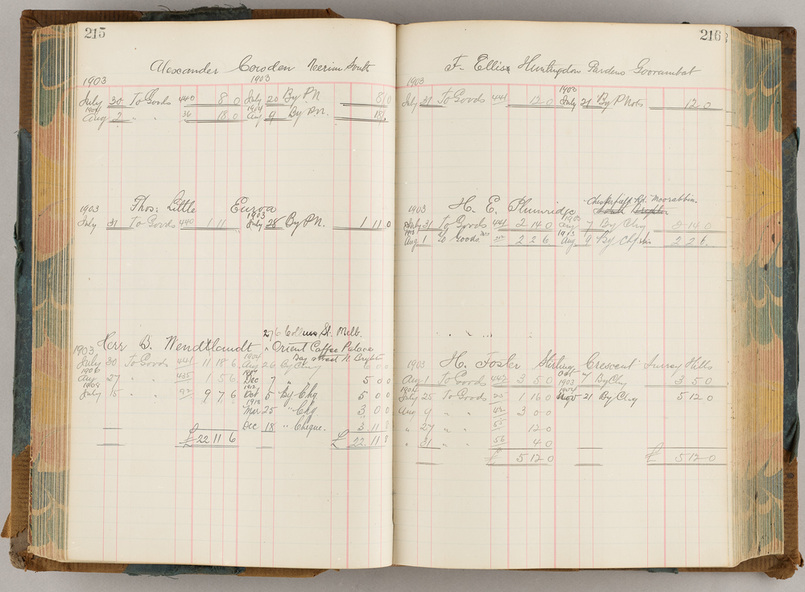 215
Alexander Corsden Neerim South
1903 1903
July 30 To Goods 440 8 0 July 20 By P.N. 8 0
Aug 2 " " 36 18 0 Aug 9 By P.N. 18
1903 Thos. Little Euroa
1903
July 31 To Goods 440 1 11 July 28 By P.N. 1 11 0
276 Collins St. Melb.
Herr B. Wendtlandt " Orient Coffee Palace
1903 Bay Street N. Bright
July 30 To Goods 441 11 18 6 Aug 26 By Chq 6 0 0
Aug 27 " " 445 1 5 6 Dec 7 " 5 0 0
July 15 " " 9 7 6 Oct 5 By Chq 5 0 0
Mar 25 " Chq 3 0 0
Dec 18 " Cheque 3 11 8
£22 11 6 £22 11 8
216
F. Ellis Huntingdon Gardens Goorambat
1903
July 31 To Goods 441 12 0 July 21 By P Note 12 0
1903 H. E. Plumridge Moorabbin
July 31 To Goods 441 2 14 0 Aug 7 By Chq 2 14 0
Aug 1 To Goods 2 2 6 Aug 9 By 2 2 6
1903 H. Foster Stirling Crescent Surrey Hills
Aug 1 To Goods 442 3 5 0 7 By Chq 3 5 0
July 25 To Goods 1 16 0 Nov 21 By Chq 5 12 0
Aug 9 " " 3 0 0
" 27 " " 12 0
" 31 " " 56 4 0
£ 5 12 0 £ 5 12 0